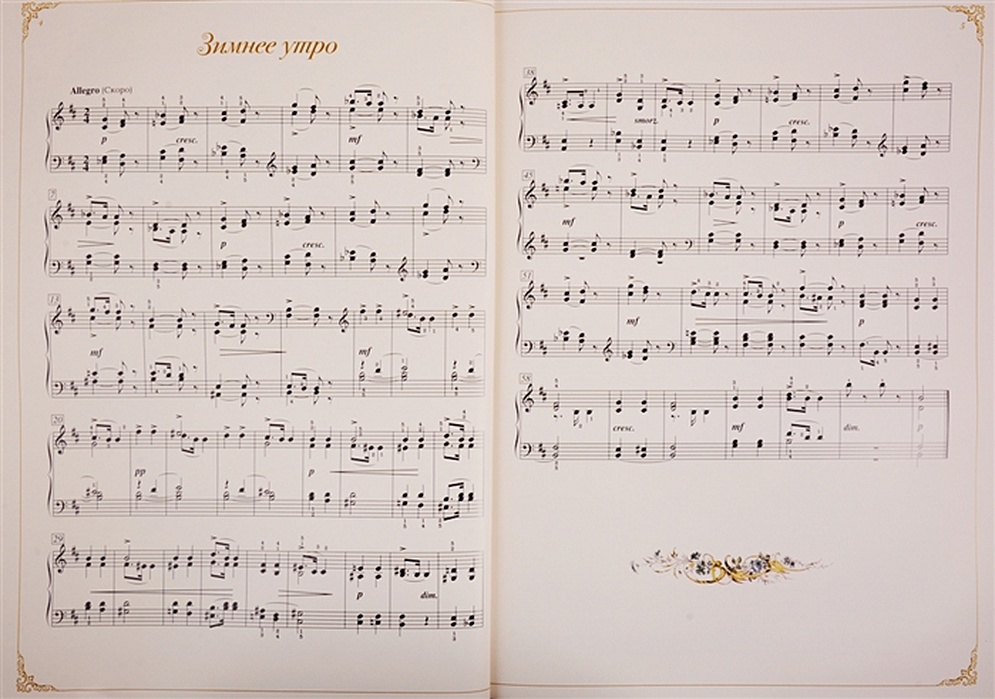 4
Зимнее утро
Allegro (Скоро)
p cresc. mf
7
p cresc.
13
mf mf
20
pp p
29
p dim.
5
38
smorz. p cresc.
45
mf p cresc.
51
mf p
58
cresc. mf dim. p